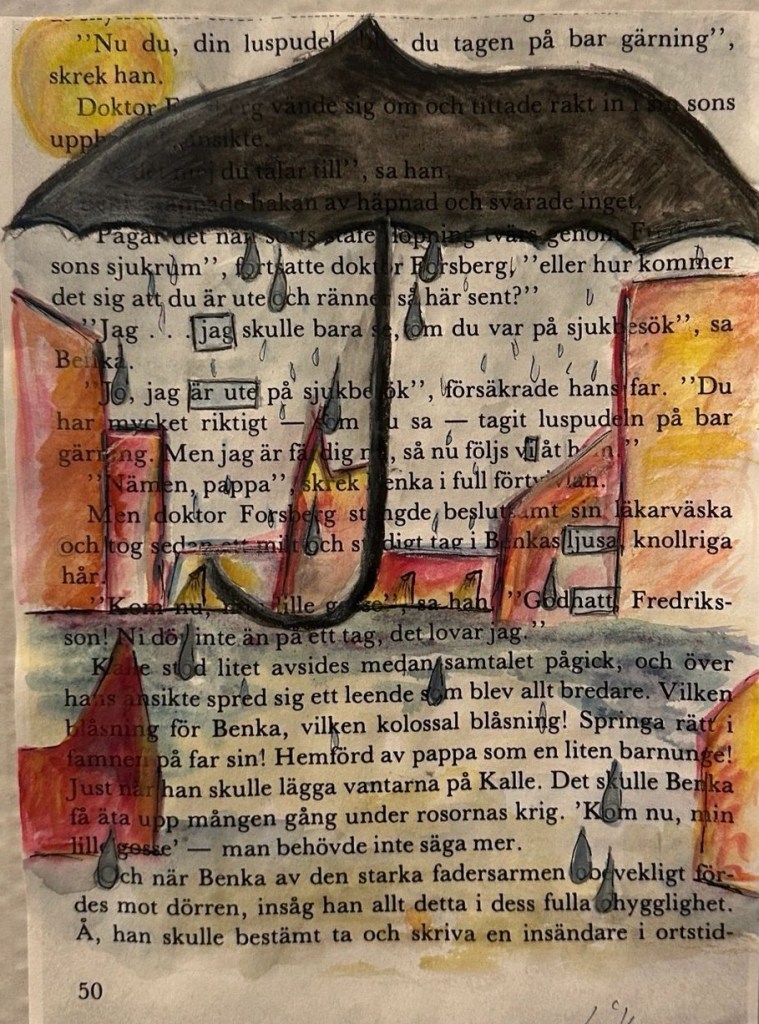 "Nu du, din luspudel, du tagen på bar gärning",
skrek han.
Doktor vände sig om och tittade rakt in i sons
ansikte.
du talar till", sa han.
hakan av häpnad och svarade inget.
"Pågår det när genom
sons sjukrum", fortsatte doktor Forsberg, "eller hur kommer
det sig att du är ute och ränner så här sent?"
"Jag . . . jag skulle bara se, om du var på sjukbesök", sa
Benka.
"Jo, jag är ute på sjukbesök", försäkrade hans far. "Du
har mycket riktigt — som du sa — tagit luspudeln på bar
gärning. Men jag är färdig nu, så nu följs vi åt hem."
"Nämen, pappa", skrek Benka i full förtvivlan.
Men doktor Forsberg stängde beslutsamt sin läkarväska
och tog sedan ett milt och stadigt tag i Benkas ljusa, knollriga
hår.
"Kom nu, min lille gosse", sa han. "Godnatt, Fredriks-
son! Ni dör inte än på ett tag, det lovar jag."
Kalle stod litet avsides medan samtalet pågick, och över
hans ansikte spred sig ett leende som blev allt bredare. Vilken
blåsning för Benka, vilken kolossal blåsning! Springa rätt i
famnen på far sin! Hemförd av pappa som en liten barnunge!
Just när han skulle lägga vantarna på Kalle. Det skulle Benka
få äta upp mången gång under rosornas krig. 'Kom nu, min
lille gosse' — man behövde inte säga mer.
Och när Benka av den starka fadersarmen obevekligt för-
des mot dörren, insåg han allt detta i dess fulla ohygglighet.
Å, han skulle bestämt ta och skriva en insändare i ortstid-
50